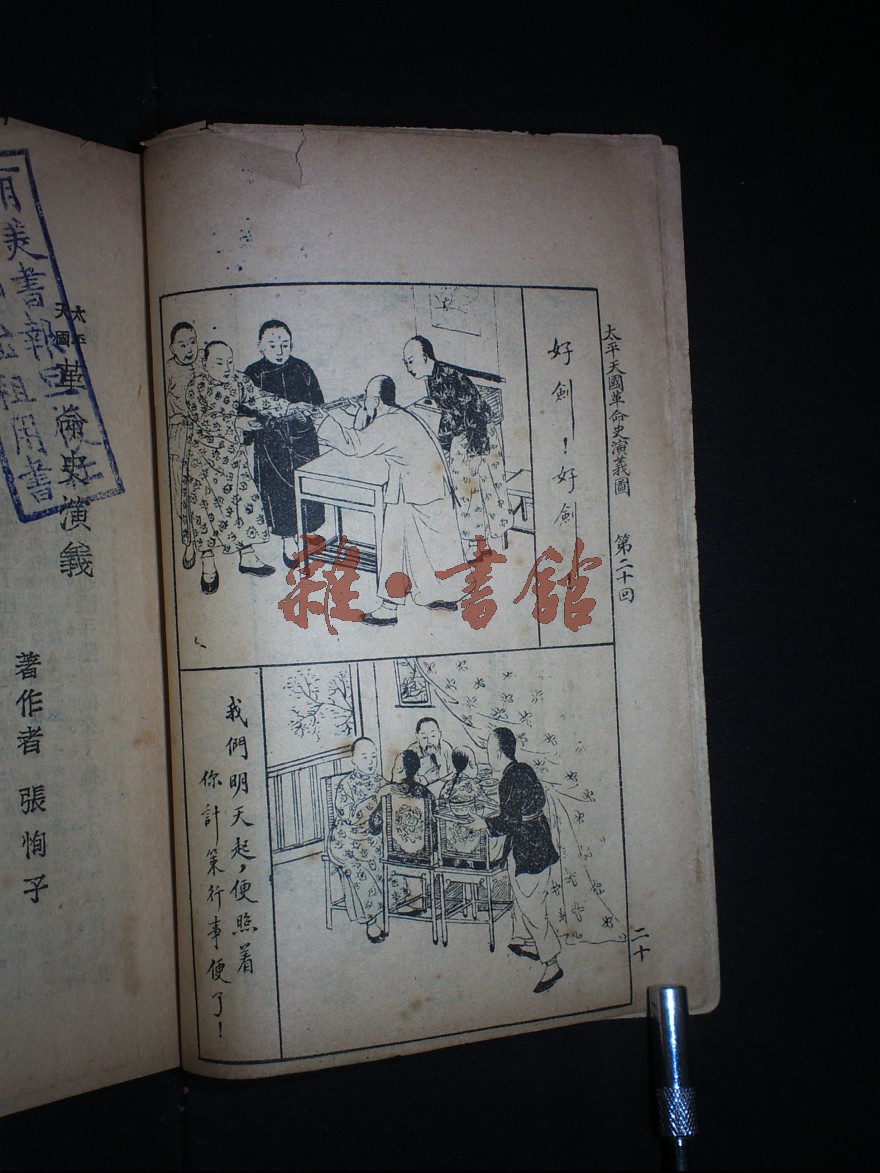 太平天國革命史演義圖 第二十回
好劍！好劍！
我們明天起，便照着
你計策行事便了！
二十
太平
天國
革命史演義
著作者 張恂子
雜·書館